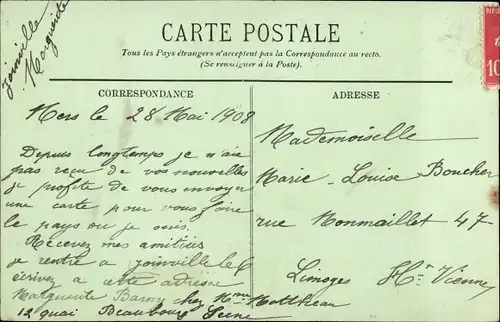 CARTE POSTALE
Tous les Pays étrangers n'acceptent pas la Correspondance au recto.
(Se renseigner à la Poste).
Joinville
Marguerite
REPUBLIQUE
10
CORRESPONDANCE
Mers le 28 Mai 1908
Depuis longtemps je n'aie
pas reçu de vos nouvelles
je profite de vous envoyer
une carte pour vous faire
le pays ou je suis.
Recevez mes amitiés
je rentre a joinville le 6
écrivez a cette adresse
Marguerite Barny chez Mme Mathieau
12 quai Beaubourg Seine
ADRESSE
Mademoiselle
Marie-Louise Boucher
rue Monmaillet 47
Limoges Hte Vienne